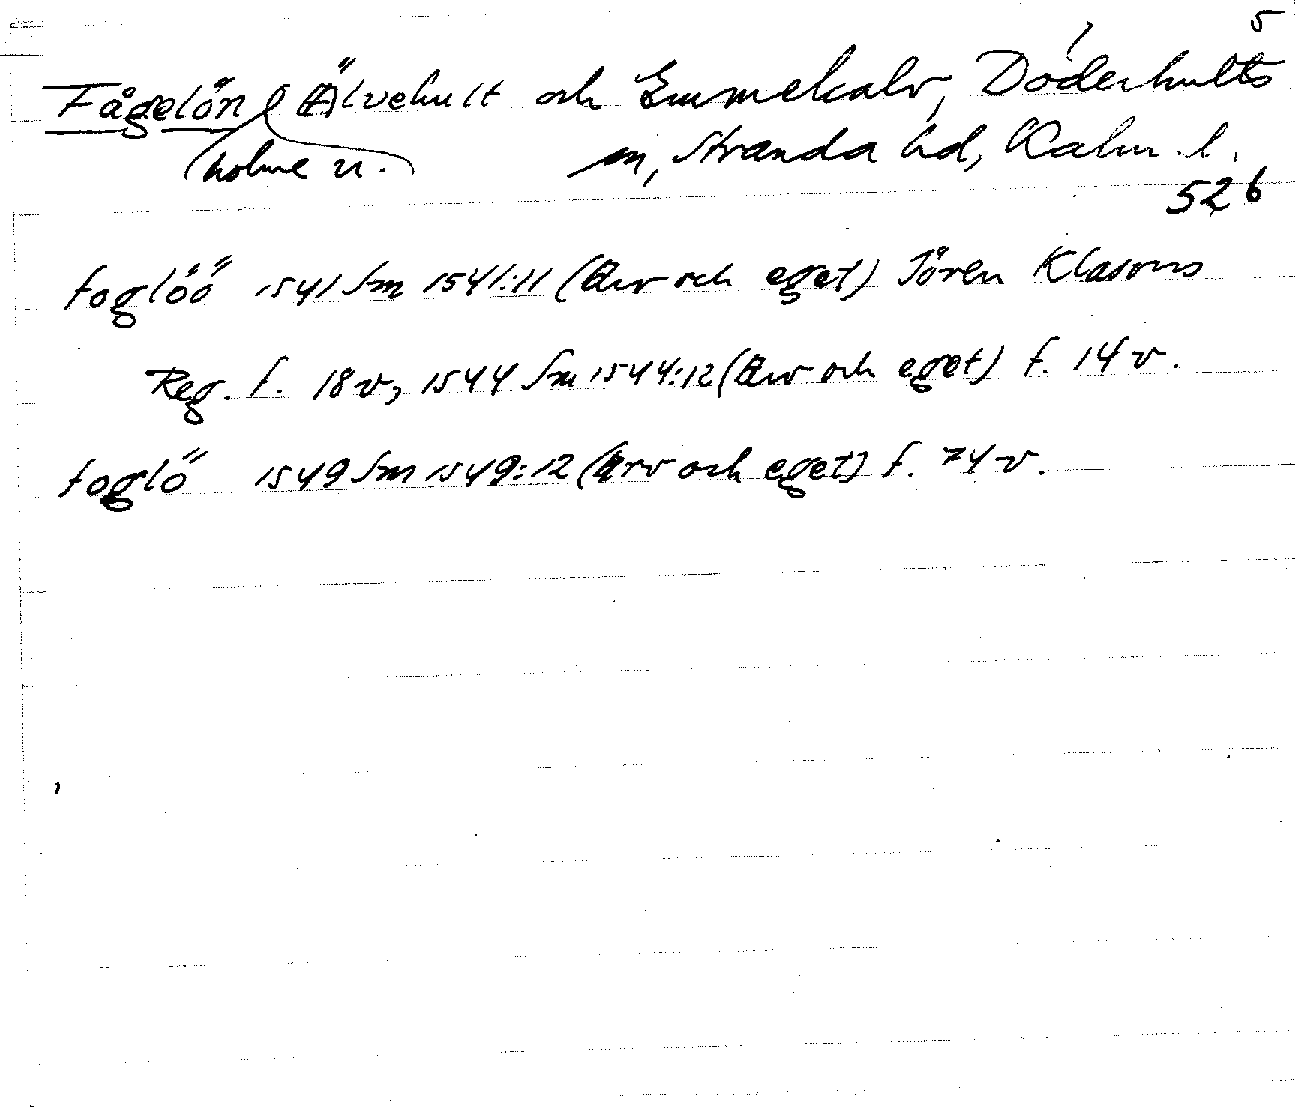 5
Fågelön Älvehult och Emmekalv, Döderhults
(holme n.) sn, Stranda hd, Kalm. l.
526
foglöö 1541 Sm 1541:11 (Arv och eget) Jören Klasons
Reg. f. 18 v, 1544 Sm 1544:12 (Arv och eget) f. 14 v.
foglö 1549 Sm 1549:12 (Arv och eget) f. 74 v.